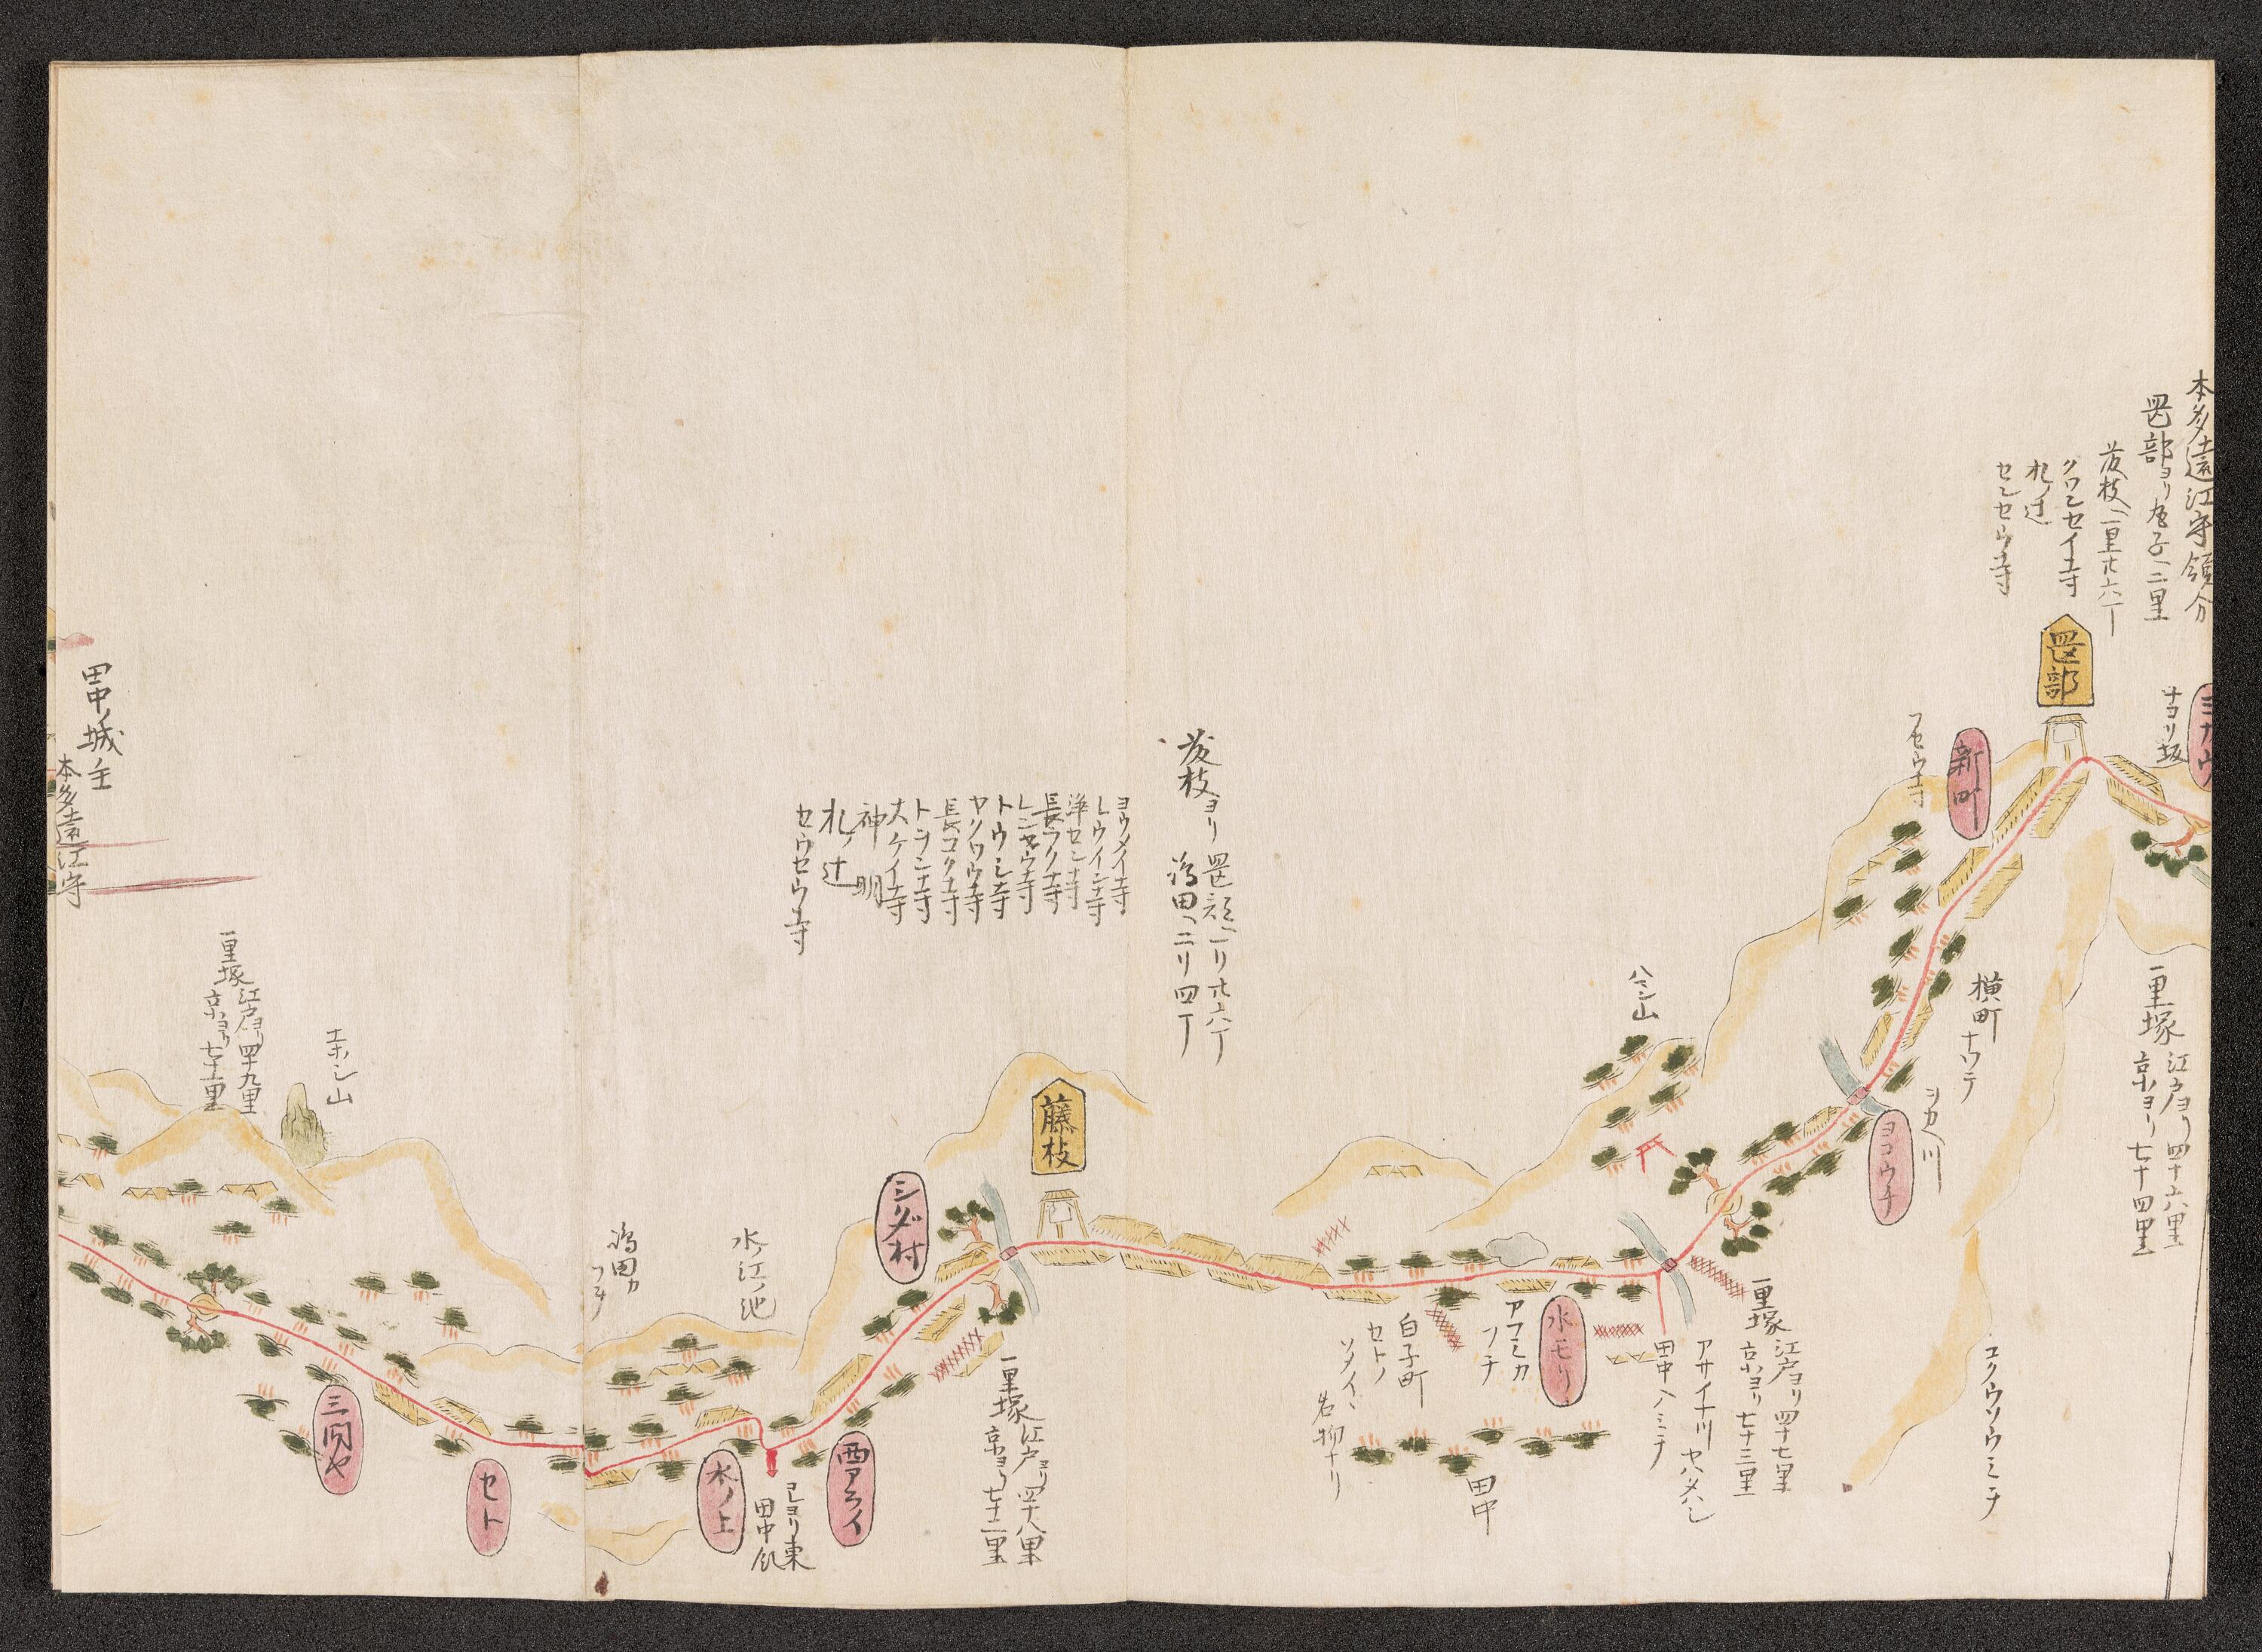 本多遠江守領分
岡部ヨリ丸子ヘ二里
藤枝ヘ一里廿六丁
クワンセイ寺
札ノ辻
センセウ寺
岡部
ナヨリ坂
新町
フセウ寺
一里塚
江戸ヨリ四十六里
京ヨリ七十四里
横町ナワテ
ヲカヘ川
ヨコウチ
コクウソウミチ
ハニシ山
一里塚
江戸ヨリ四十七里
京ヨリ七十三里
アサイナ川ヤハタハシ
田中ヘミチ
水モリ
アフミカ
フチ
白子町
セトノ
ソメイヽ
名物ナリ
田中
藤枝ヨリ岡部ヘ一リ廿六丁
嶋田ヘ二リ四丁
ヨウメイ寺
レウイン寺
浄セン寺
長フク寺
レンセウ寺
トウシ寺
ヤクワウ寺
長コク寺
トウン寺
大ケイ寺
神明
札ノ辻
セウセウ寺
藤枝
一里塚
江戸ヨリ四十八里
京ヨリ七十二里
シダ村
西アライ
コレヨリ東
田中領
水ノ上
水江ノ池
嶋田カ
フチ
セト
三間ヤ
エホシ山
一里塚
江戸ヨリ四十九里
京ヨリ七十一里
田中ノ城主
本多遠江守